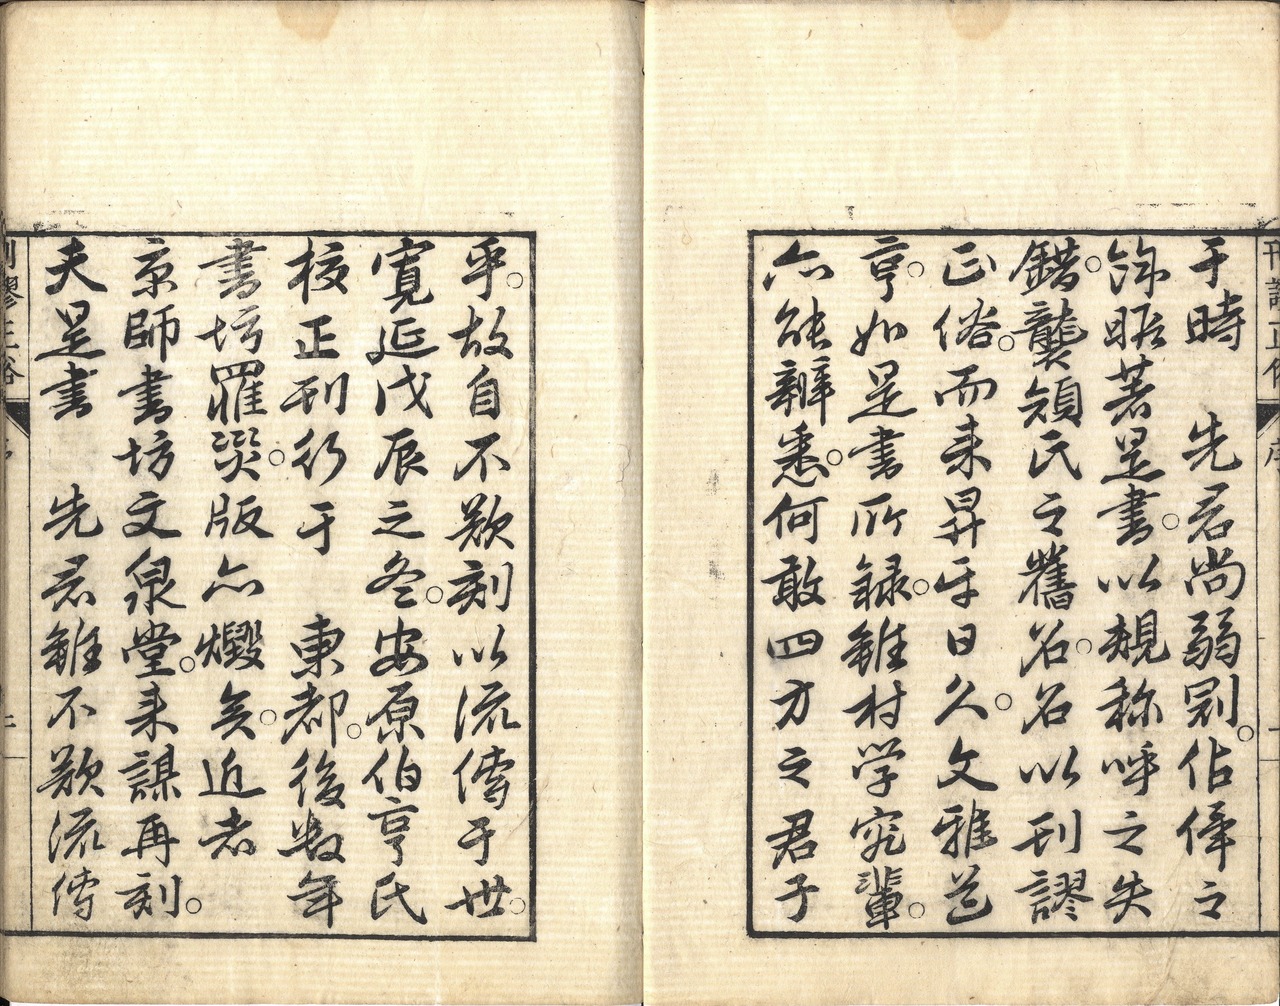 于時　先君尚弱冠。佔俾之
餘暇著是書。以規称呼之失
錯。襲顔氏之舊名。名以刊謬
正俗。而来昇平日久。文雅益
亨。如是書所録。雖村学究輩。
亦能辨悉。何敢四方之君子
乎。故自不欲刻以流傳于世。
寛延戊辰之冬。安原伯亨氏
校正刊行于　東都。後数年
書坊罹災。版亦燬矣。近者
京師書坊文泉堂。来謀再刻。
夫是書　先君雖不欲流傳